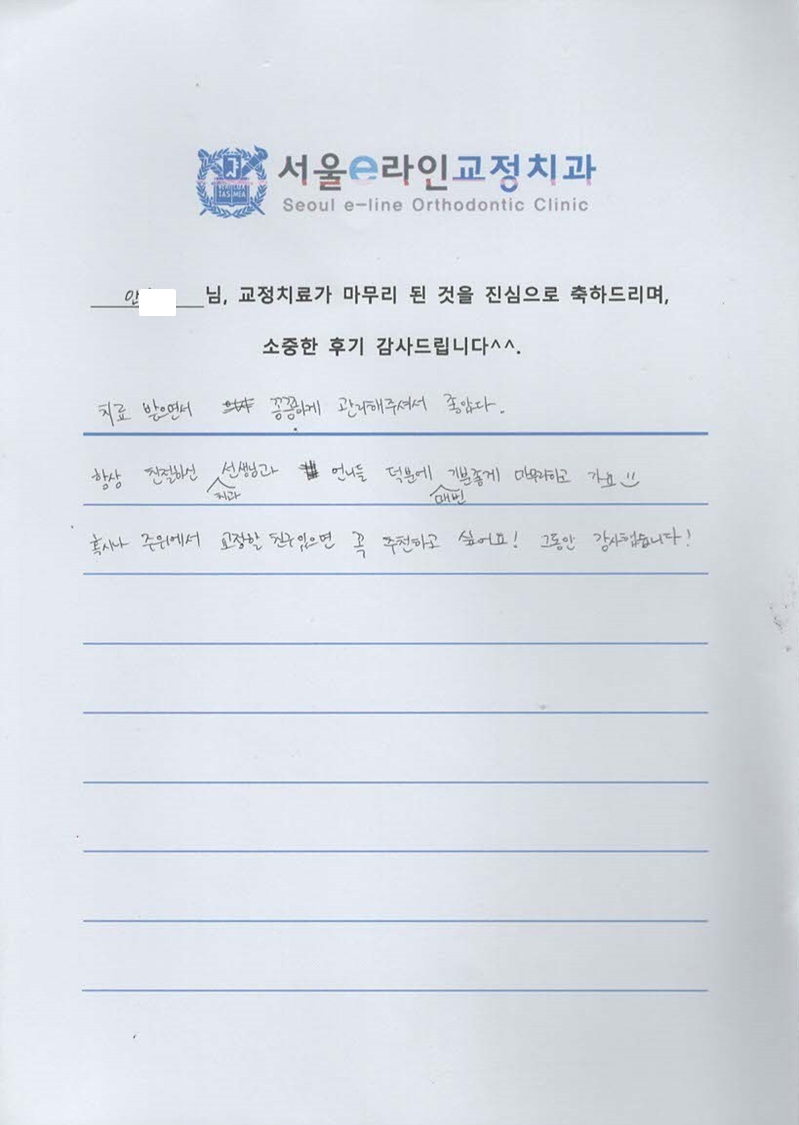 서울e라인교정치과
Seoul e-line Orthodontic Clinic
안 님, 교정치료가 마무리 된 것을 진심으로 축하드리며,
소중한 후기 감사드립니다^^.
치료 받으면서 꼼꼼하게 관리해주셔서 좋았다.
항상 친절하신 치과 선생님과 언니들 덕분에 매번 기분좋게 마무리하고 가요
혹시나 주위에서 교정할 친구있으면 꼭 추천하고 싶어요! 그동안 감사했습니다!